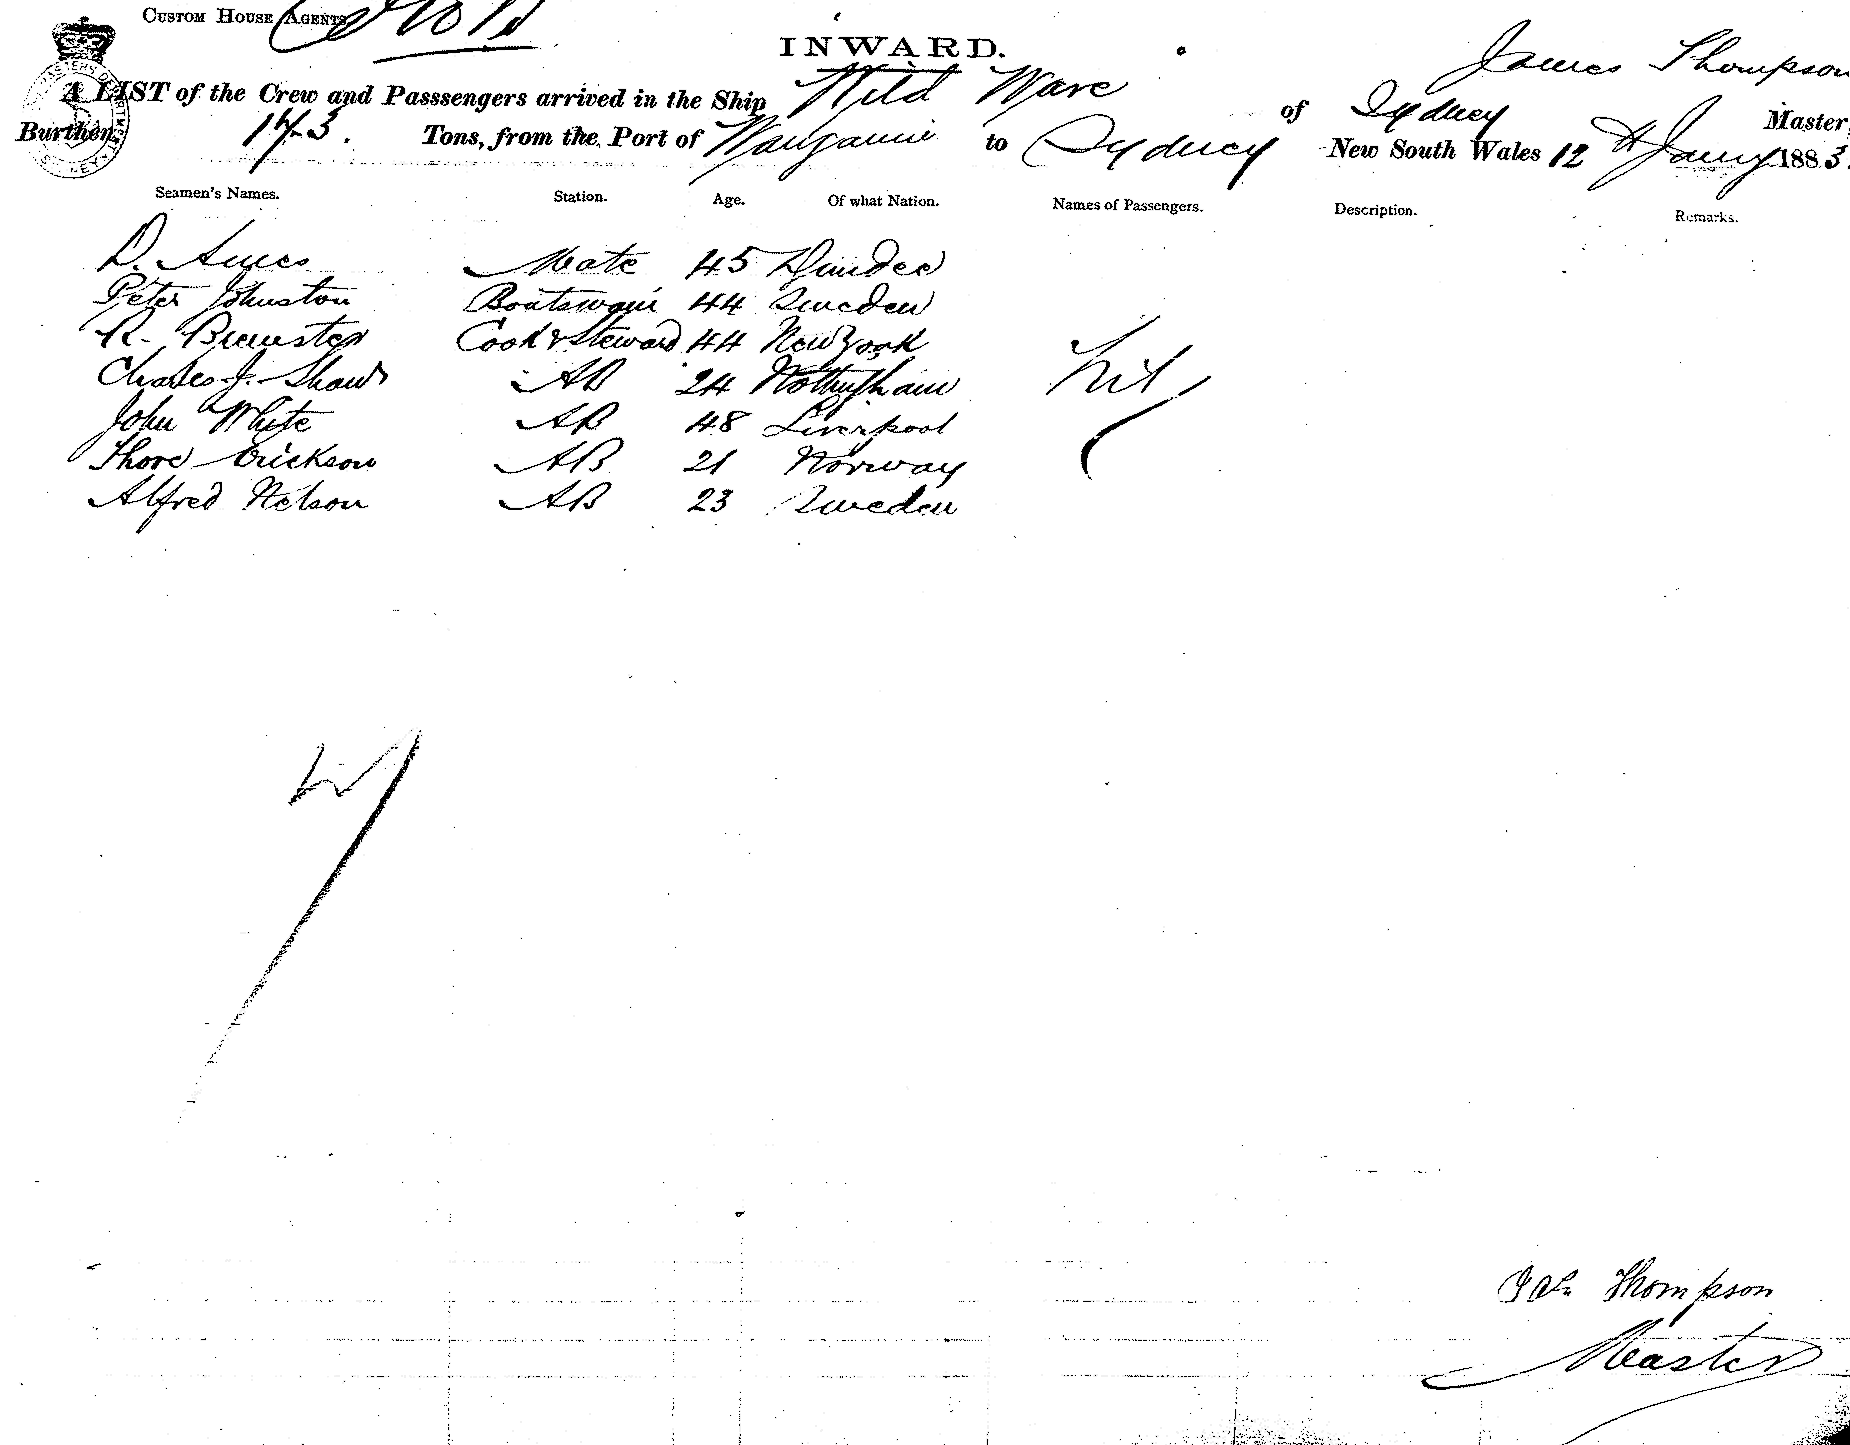 CUSTOM HOUSE AGENTS
INWARD.
James Thompson
A LIST of the Crew and Passsengers arrived in the Ship Wild Wave of Sydney Master,
Burthen 173. Tons, from the Port of to Sydney New South Wales 12th Jany 1883.
Seamen's Names. Station. Age. Of what Nation. Names of Passengers. Description. Remarks.
D. Mate 45 Dundee
Peter Johnston Boatswain 44 Sweden
R. Brewster Cook & Steward 44 New York
Charles J. Shaw AB 24 Nottingham Nil
John White AB 48 Liverpool
Thore Erickson AB 21 Norway
Alfred Nelson AB 23 Sweden
Thompson
Master